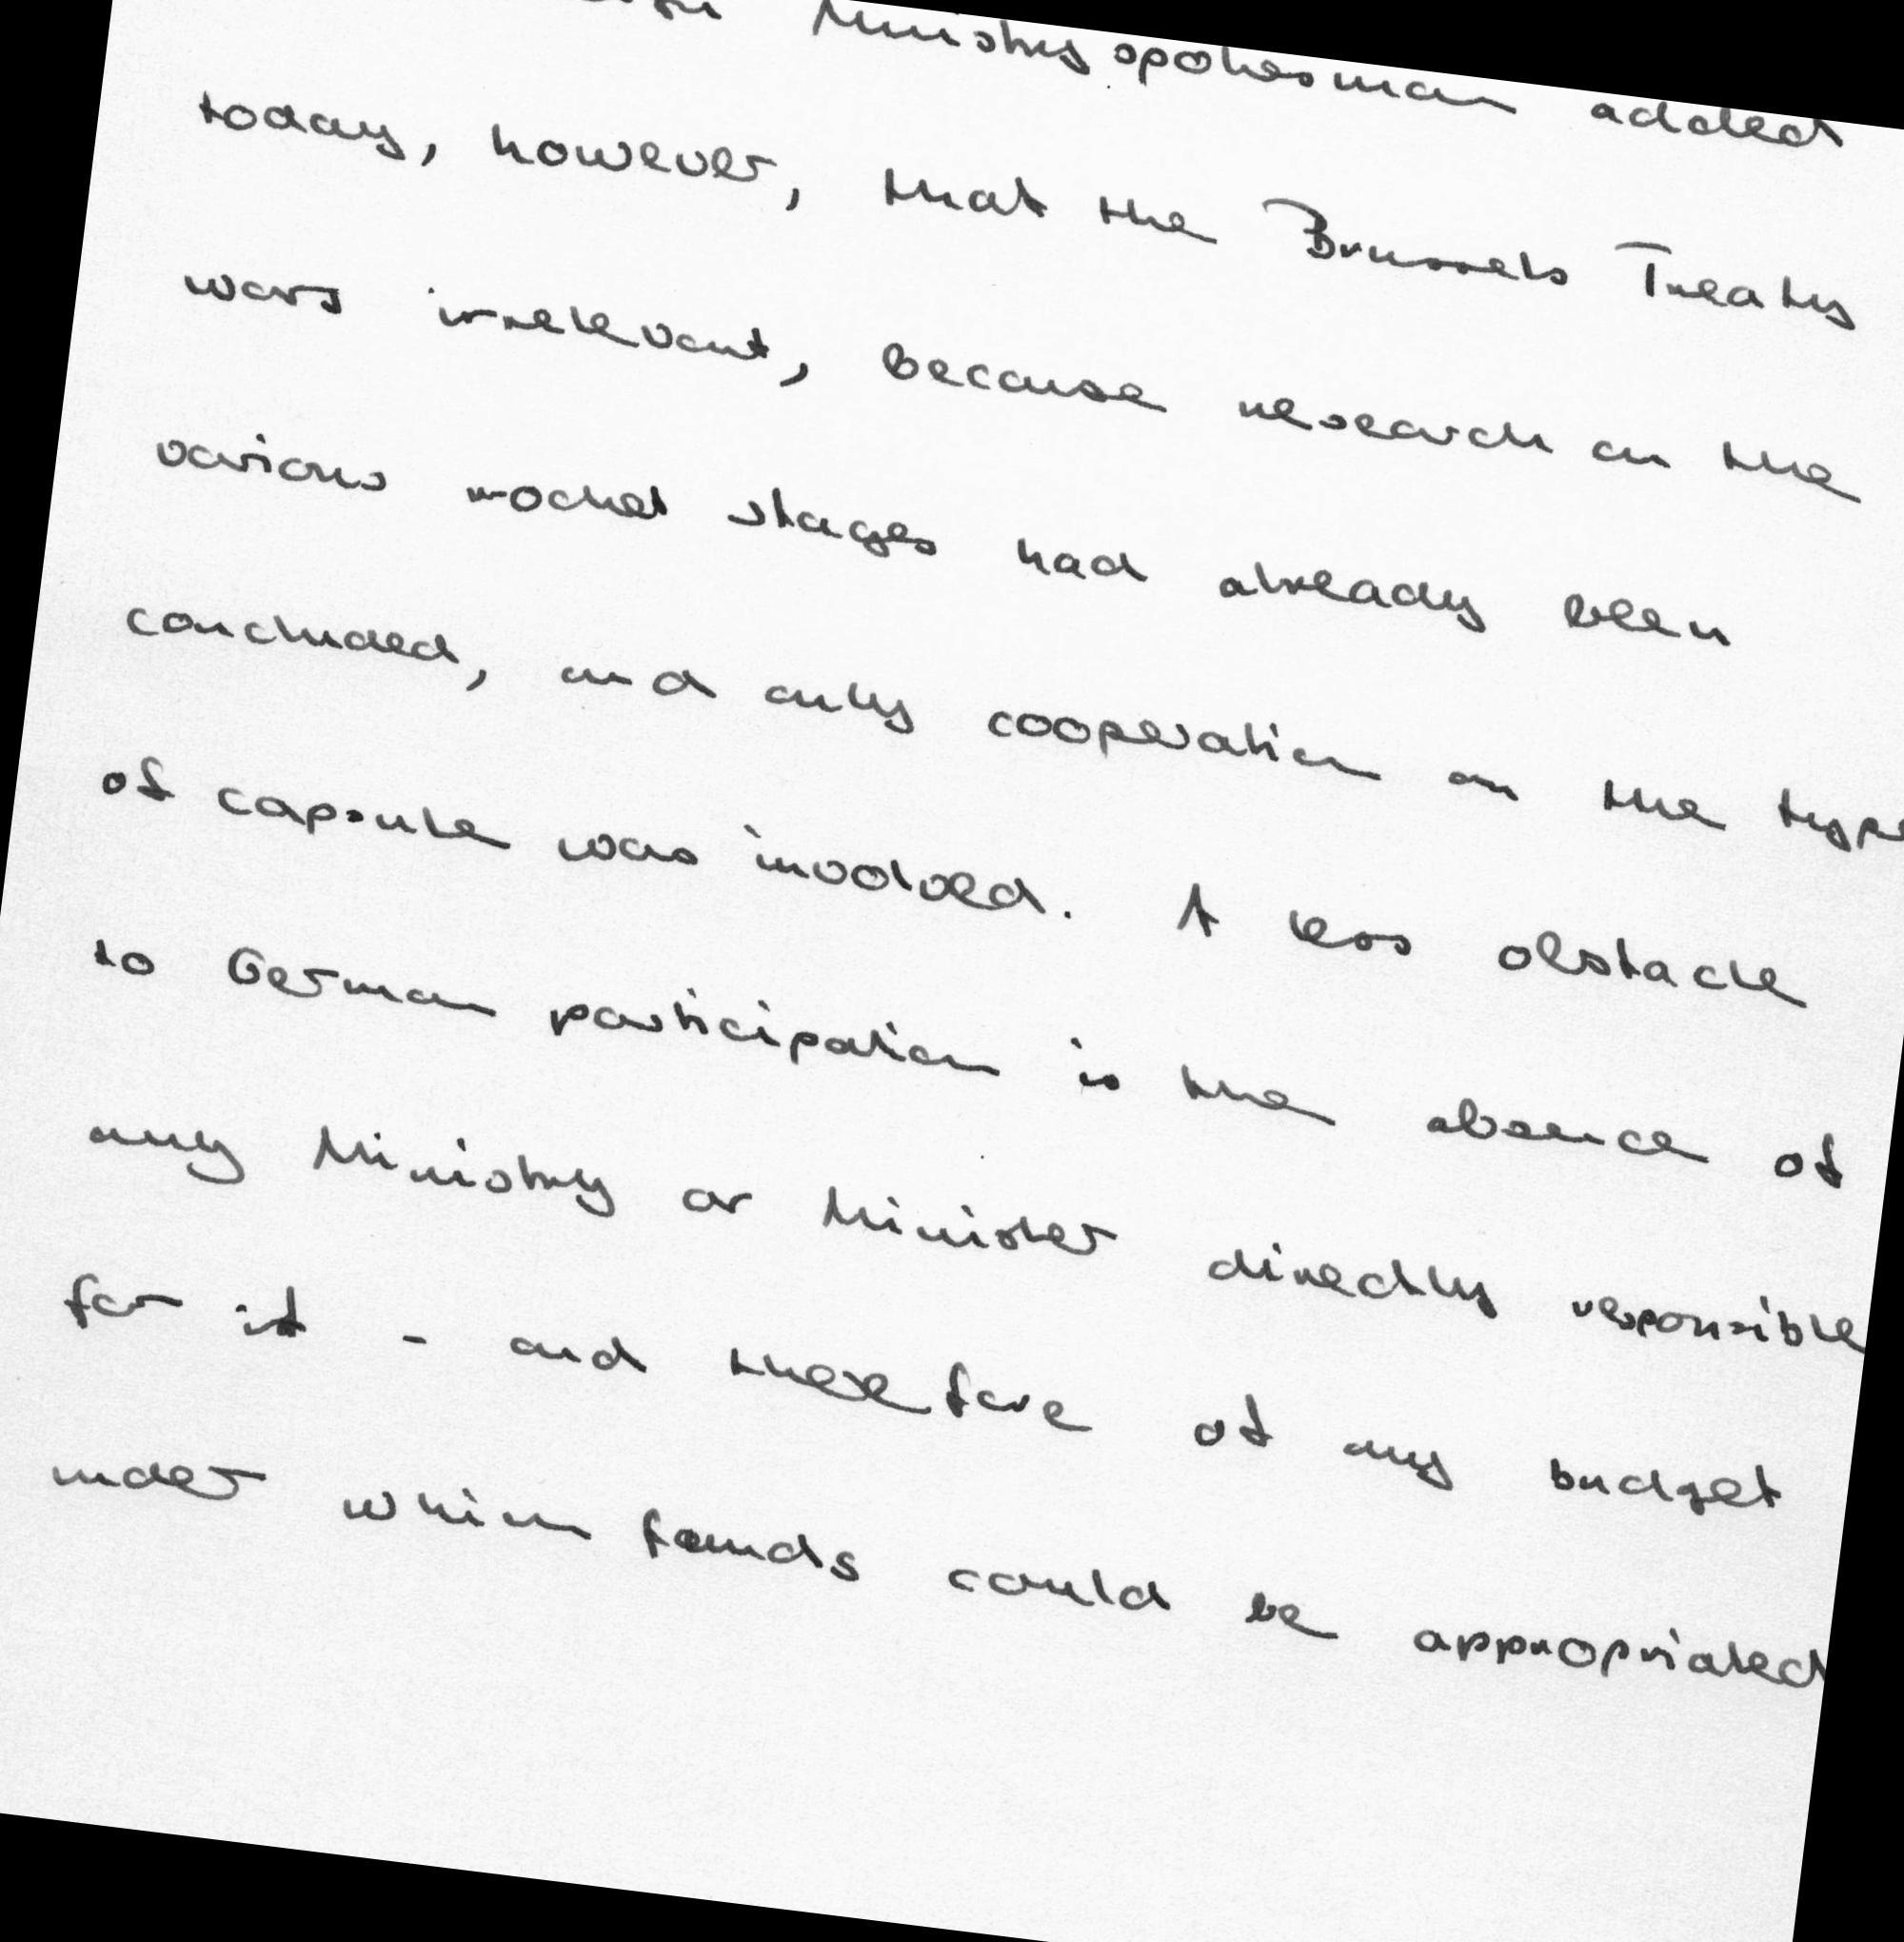 Ministry spokesman added
today, however, that the Brussels Treaty
was irrelevant, because research on the
various rocket stages had already been
concluded, and only cooperation on the type
of capsule was involved. A less obstacle
to German participation is the absence of
any Ministry or Minister directly responsible
for it - and therefore of any budget
under which funds could be appropriated